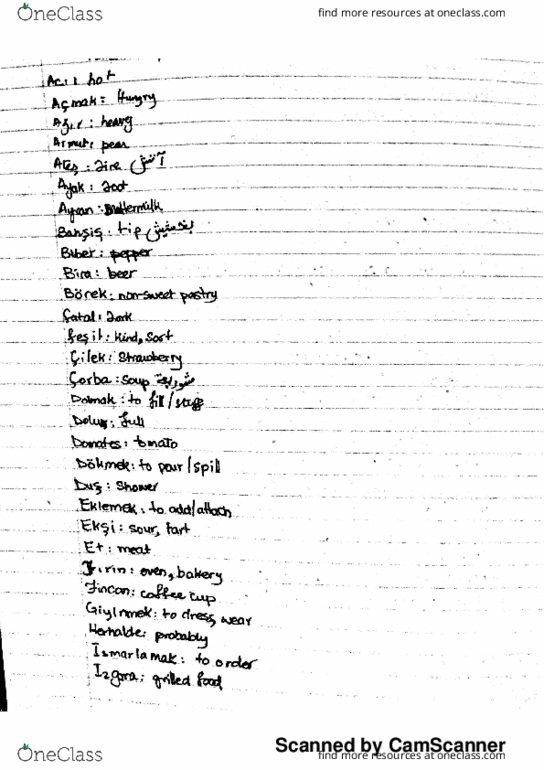 OneClass
find more resources at oneclass.com
Acı: hot
Açmak: Hungry
Ağır: heavy
Armut: pear
Ateş: fire آتش
Ayak: foot
Ayran: Buttermilk
Bahşiş: tip بخشیش
Biber: pepper
Bira: beer
Börek: non-sweet pastry
Çatal: fork
Çeşit: kind, sort
Çilek: Strawberry
Çorba: soup شوربة
Dolmak: to fill/stuff
Dolu: full
Domates: tomato
Dökmek: to pour/spill
Duş: Shower
Eklemek: to add/attach
Ekşi: sour, tart
Et: meat
Fırın: oven, bakery
Fincan: coffee cup
Giyinmek: to dress, wear
Herhalde: probably
Ismarlamak: to order
Izgara: grilled food
Scanned by CamScanner
OneClass
find more resources at oneclass.com